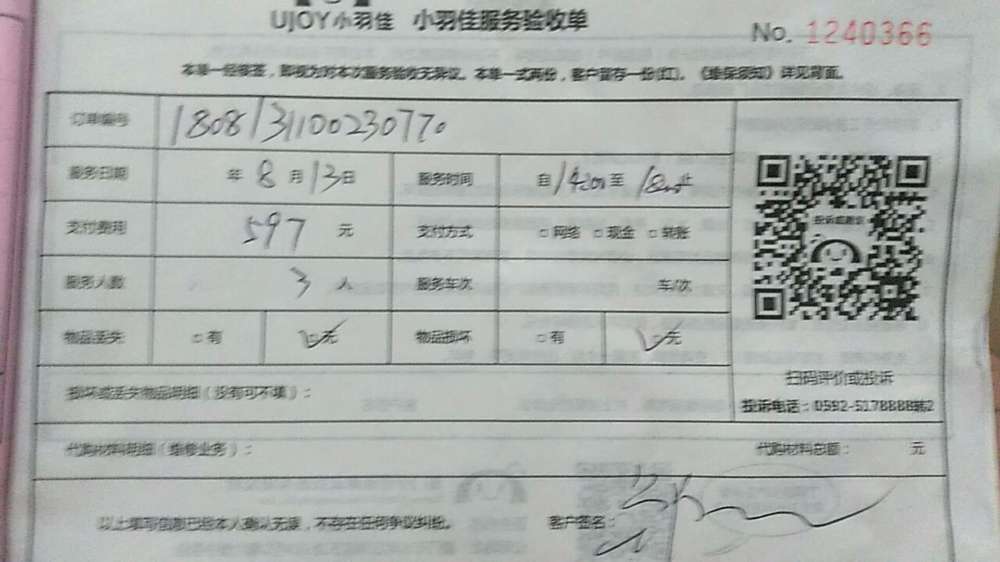 UJOY小羽佳 小羽佳服务验收单
No. 1240366
本单一经接签，即视为对本次服务验收无异议。本单一式两份，客户留存一份(红)。《维保须知》详见背面。
订单编号 1808131100230770
服务日期 年 8 月 13 日 服务时间 自 至 止
支付费用 597 元 支付方式 □网络 □现金 □转账
服务人数 3 人 服务车次 车/次
物品丢失 □有 □无 物品损坏 □有 □无
投诉或建议
扫码评价或投诉
损坏或丢失物品明细（没有可不填）：
投诉电话：0592-5178888转2
代购材料明细（维修业务）： 代购材料总额： 元
以上填写信息已经本人确认无误，不存在任何争议纠纷。 客户签名：